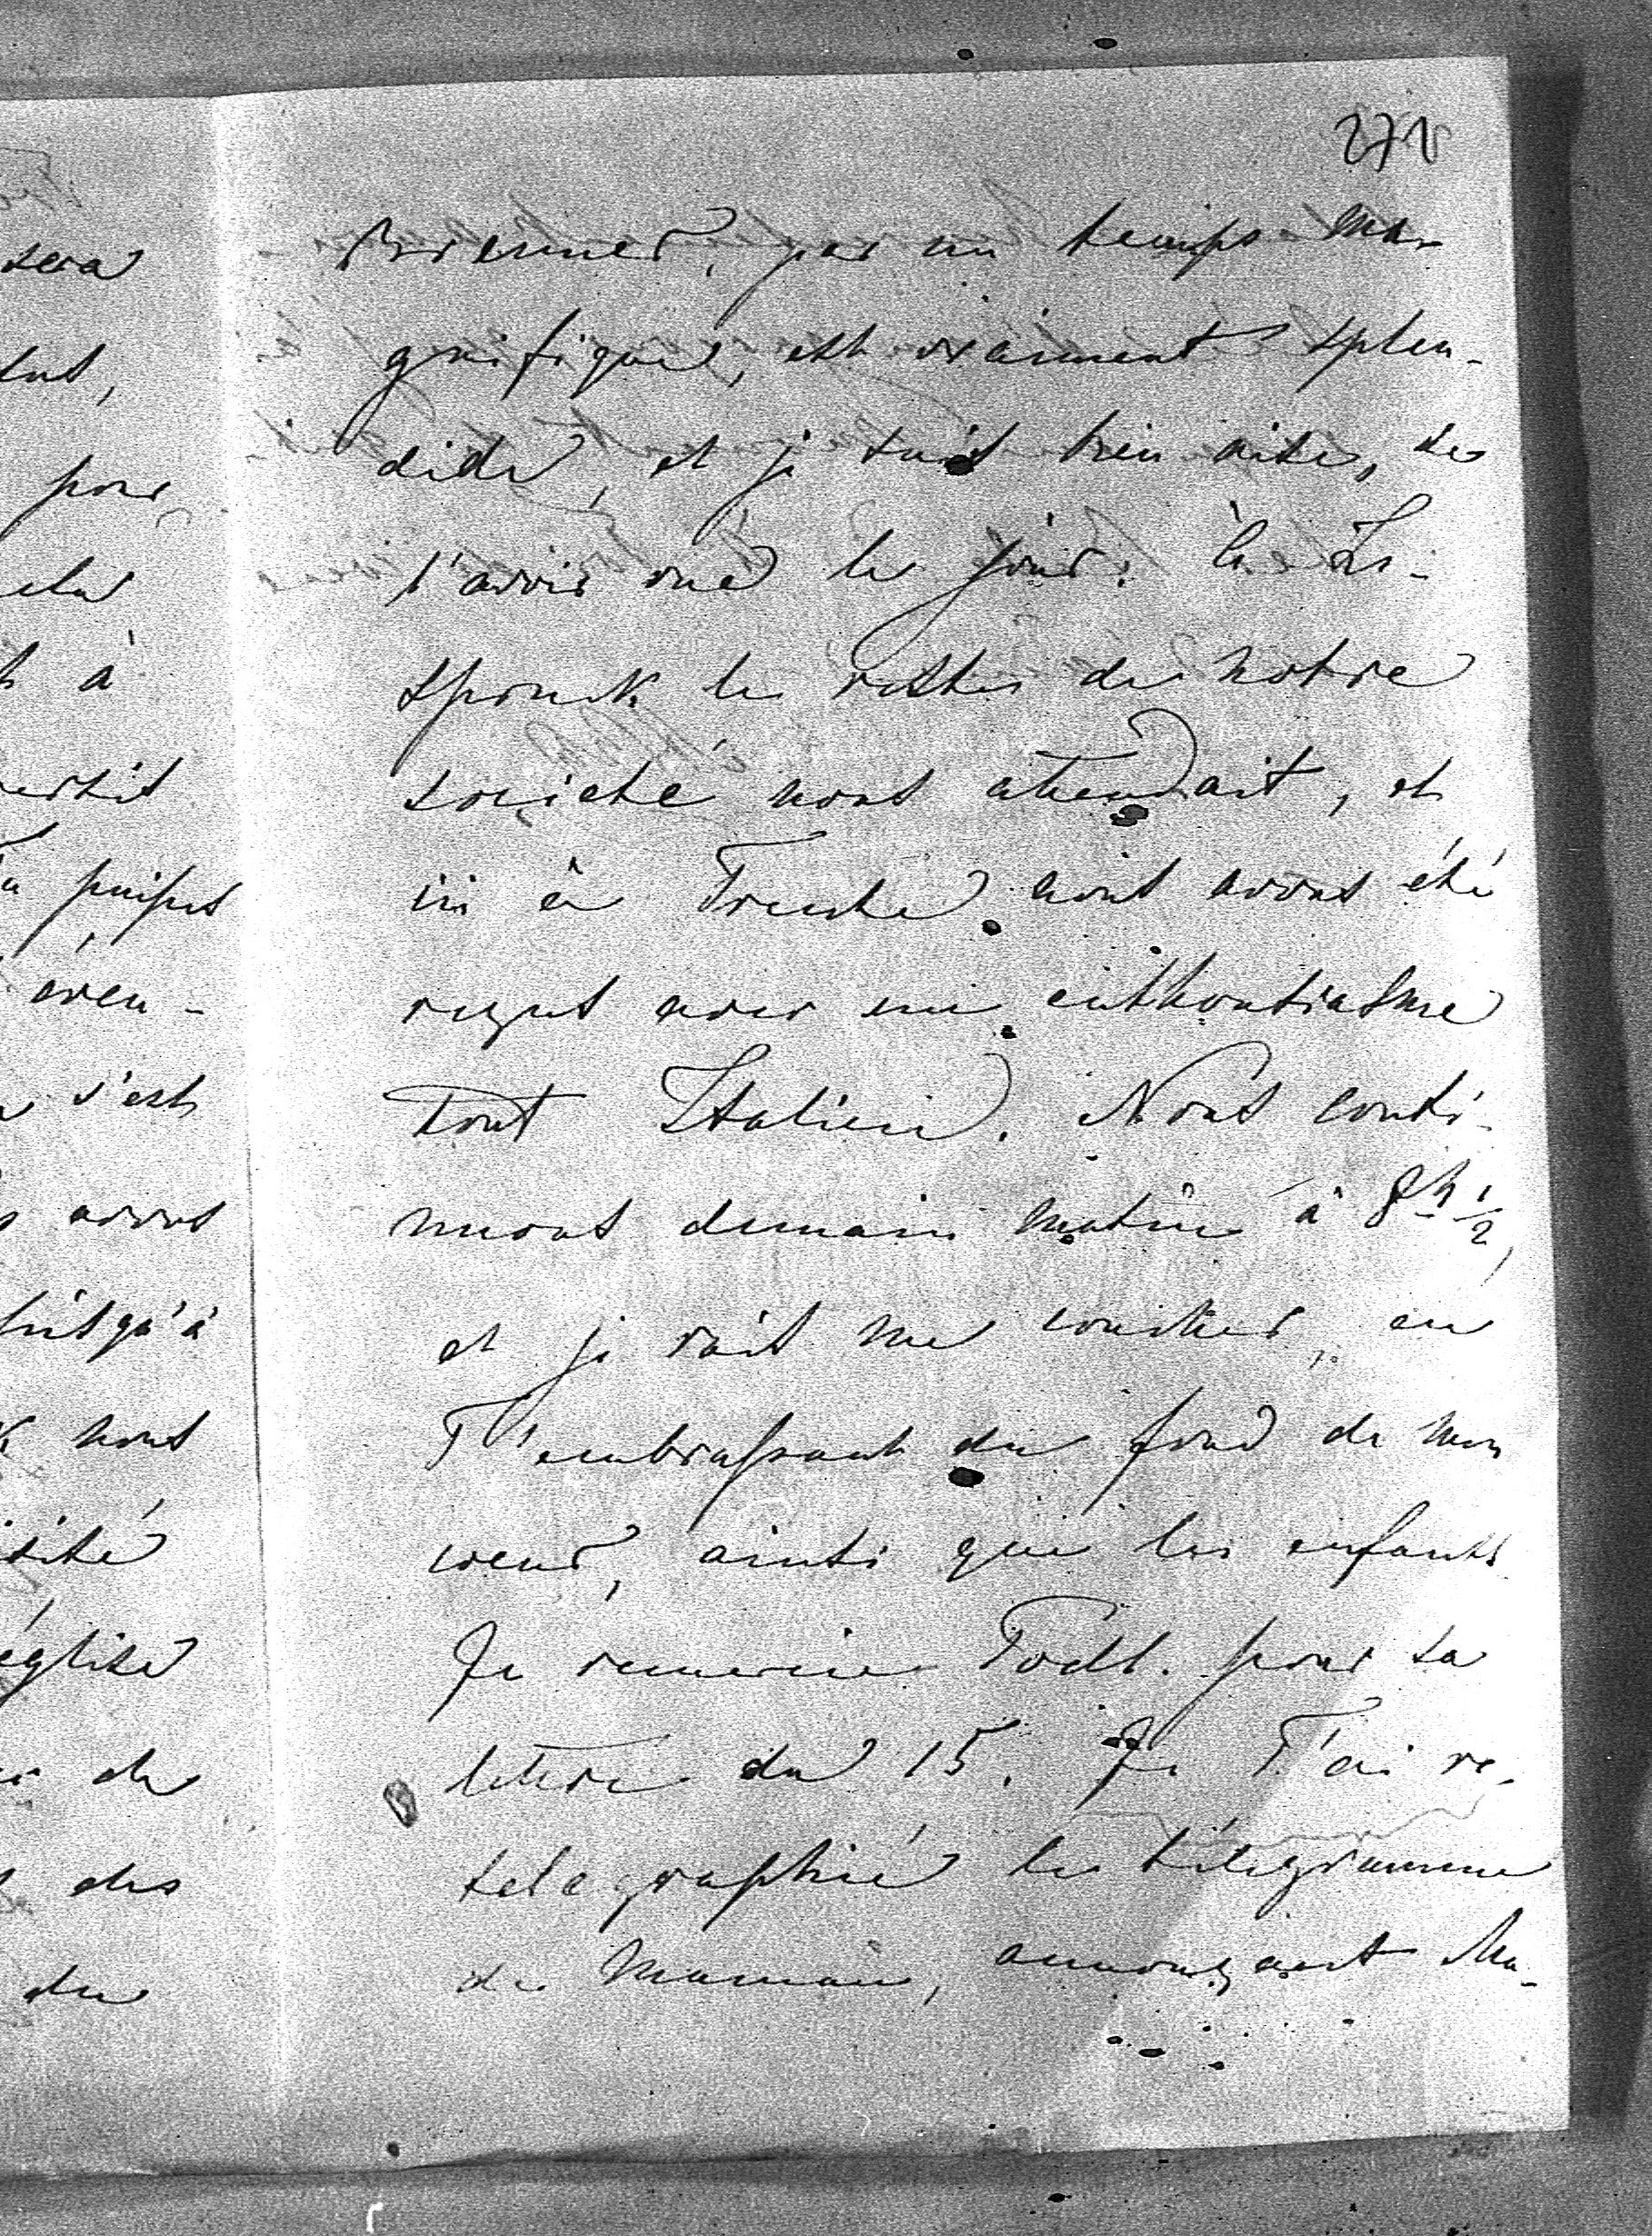 271
sera
pour
à
s'est
avons
jusqu'à
nous
église
de
des
du
Brenner, par un temps ma-
gnifique, est vraiment splen-
dide, et je suis bien aise, de
l'avoir vue le jour. à In-
spruck le reste de notre
société nous attendait, et
ici à Trente nous avons été
reçus avec un enthousiasme
tout Italien. Nous conti-
nuons demain matin à 8h 1/2,
et je vais me coucher, en
T'embrassant du fond de mon
coeur, ainsi que les enfants
Je remercie Todl. pour sa
lettre du 15. Je T'ai re-
télégraphié le télégramme
de Maman, annonçant Ma-